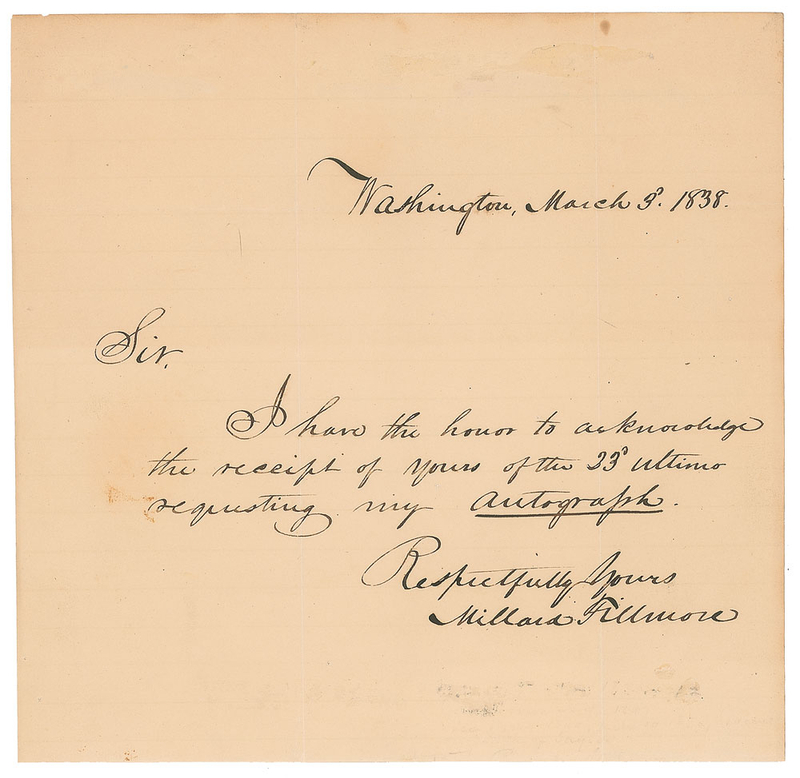 Washington, March 3d. 1838.
Sir.
I have the honor to acknowledge
the receipt of yours of the 23d ultimo
requesting my autograph.
Respectfully Yours
Millard Fillmore